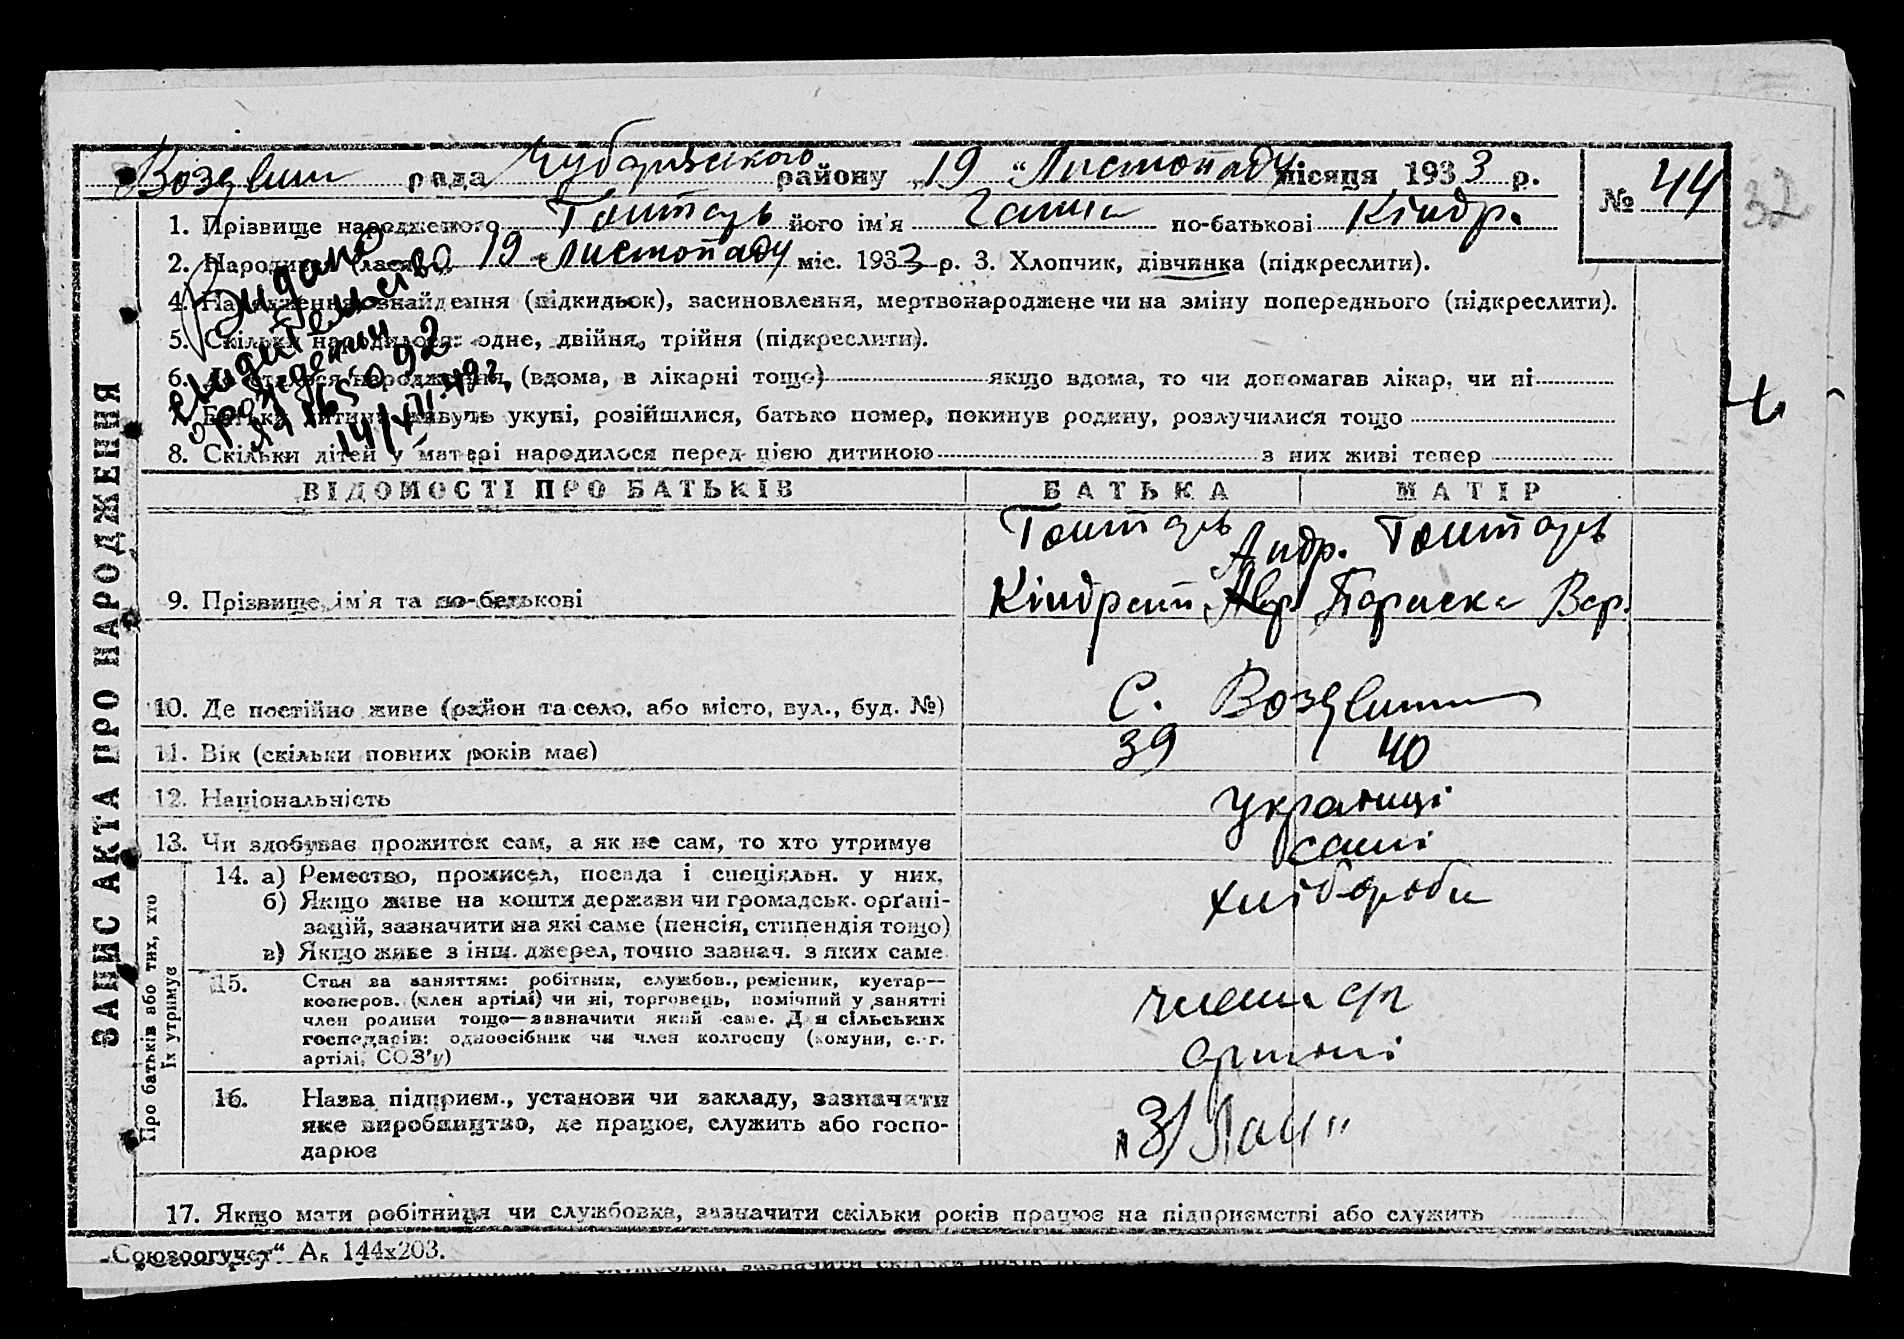 Воздвиш рада Чубарівського району „19 “ Листопаду місяця 1933 р.
№ 44
32
1. Прізвище народженого його ім'я Галина по-батькові Кіндр.
2. Народився (лася) 19 листопаду міс. 1933 р. 3. Хлопчик, дівчинка (підкреслити).
4. Народження, знайдення (підкидьок), засиновлення, мертвонароджене чи на зміну попереднього (підкреслити).
5. Скільки народилося: одне, двійня, трійня (підкреслити).
6. Де сталося народження, (вдома, в лікарні тощо) якщо вдома, то чи допомагав лікар, чи ні
7. Батьки дитини живуть укупі, розійшлися, батько помер, покинув родину, розлучилися тощо
8. Скільки дітей у матері народилося перед цією дитиною з них живі тепер
Видано
свидетельство
о рождении
№ 165092
14/XII-49г.
ЗАПИС АКТА ПРО НАРОДЖЕННЯ
ВІДОМОСТІ ПРО БАТЬКІВ БАТЬКА МАТІР
Андр.
9. Прізвище, ім'я та по-батькові Кіндрат Авр. Параска Вар.
10. Де постійно живе (район та село, або місто, вул., буд. №) С. Воздвиш
11. Вік (скільки повних років має) 39 40
12. Національність Українці
13. Чи здобуває прожиток сам, а як не сам, то хто утримує самі
Про батьків або тих, хто
їх утримує
14. а) Ремество, промисел, посада і спеціяльн. у них.
б) Якщо живе на кошти держави чи громадськ. орґані-
зацій, зазначити на які саме (пенсія, стипендія тощо)
в) Якщо живе з інш. джерел, точно зазнач. з яких саме
хлібороби
15. Стан за заняттям: робітник, службов., ремісник, кустар—
кооперов. (член артілі) чи ні, торговець, помічний у занятті
член родини тощо—зазначити який саме. Для сільських
господарів: одноосібник чи член колгоспу (комуни, с.-г.
артілі, СОЗ'у)
члени с/г
артілі
16. Назва підприєм., установи чи закладу, зазначити
яке виробництво, де працює, служить або госпо-
дарює
„З/Лан“
17. Якщо мати робітниця чи службовка, зазначити скільки років працює на підприємстві або служить
„Союзоргучет“ А₅ 144х203.